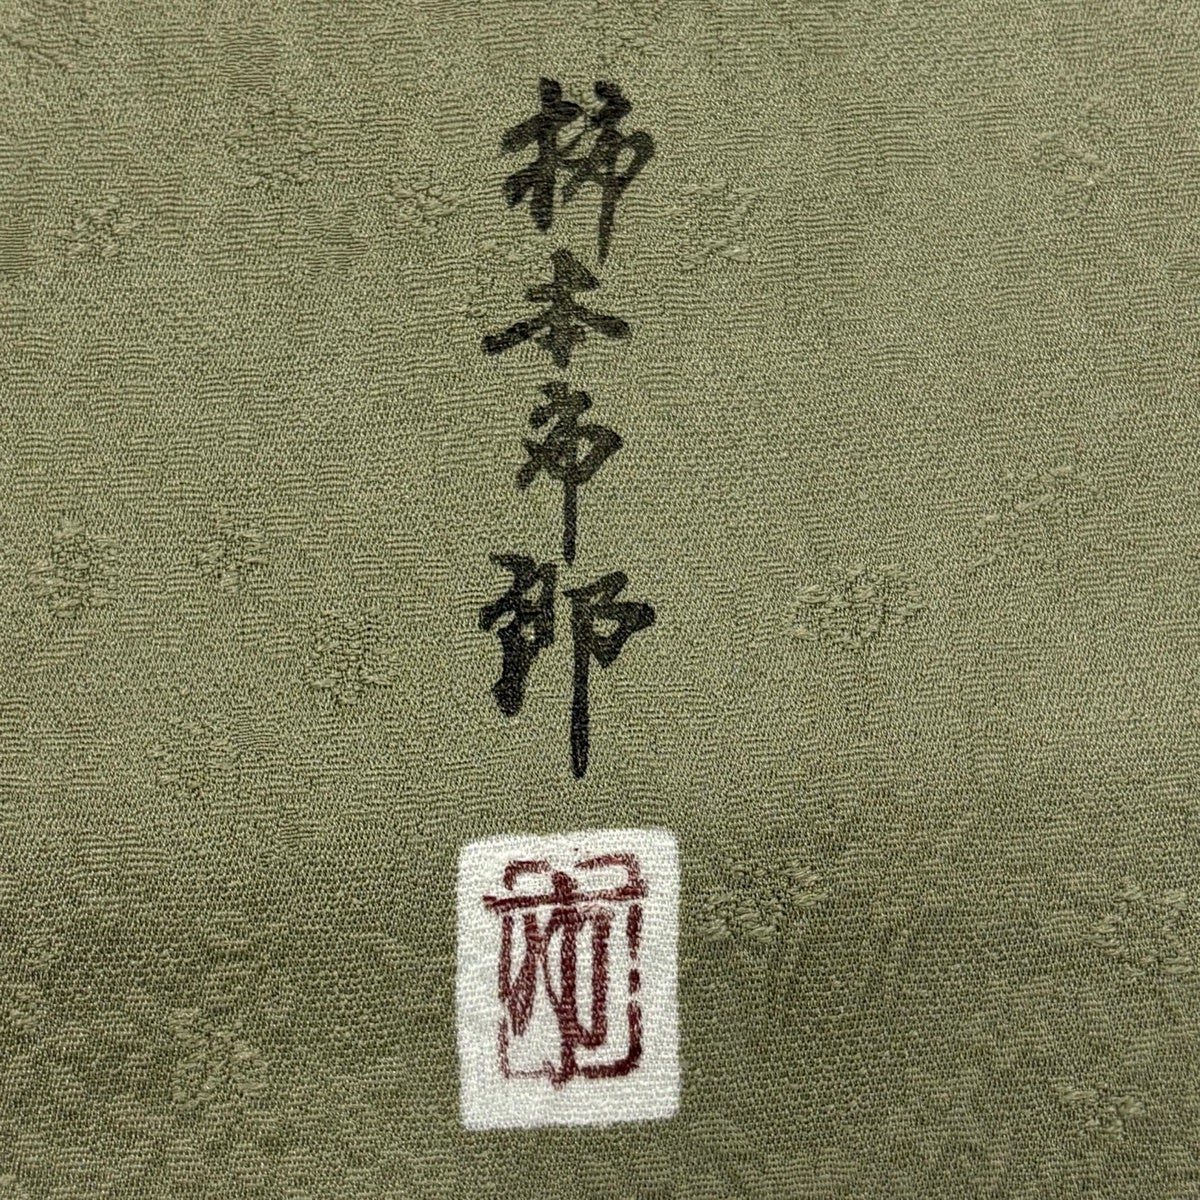 柿本市郎
市